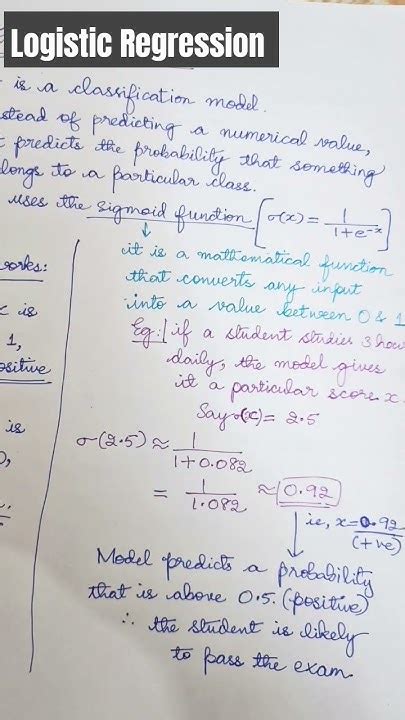 Logistic Regression
is a classification model.
stead of predicting a numerical value,
t predicts the probability that something
elongs to a particular class.
uses the sigmoid function [σ(x) = 1/(1+e^-x)]
it is a mathematical function
that converts any input
into a value between 0 & 1
Eg:| if a student studies 3 hou
daily, the model gives
it a particular score x.
Say σ(x) = 2.5
σ(2.5) ≈ 1/(1+0.082)
= 1/1.082 ≈ 0.92
ie, x = 0.92
(+ve)
Model predicts a probability
that is above 0.5. (positive)
∴ the student is likely
to pass the exam.
works:
is
1,
ositive
is
0,